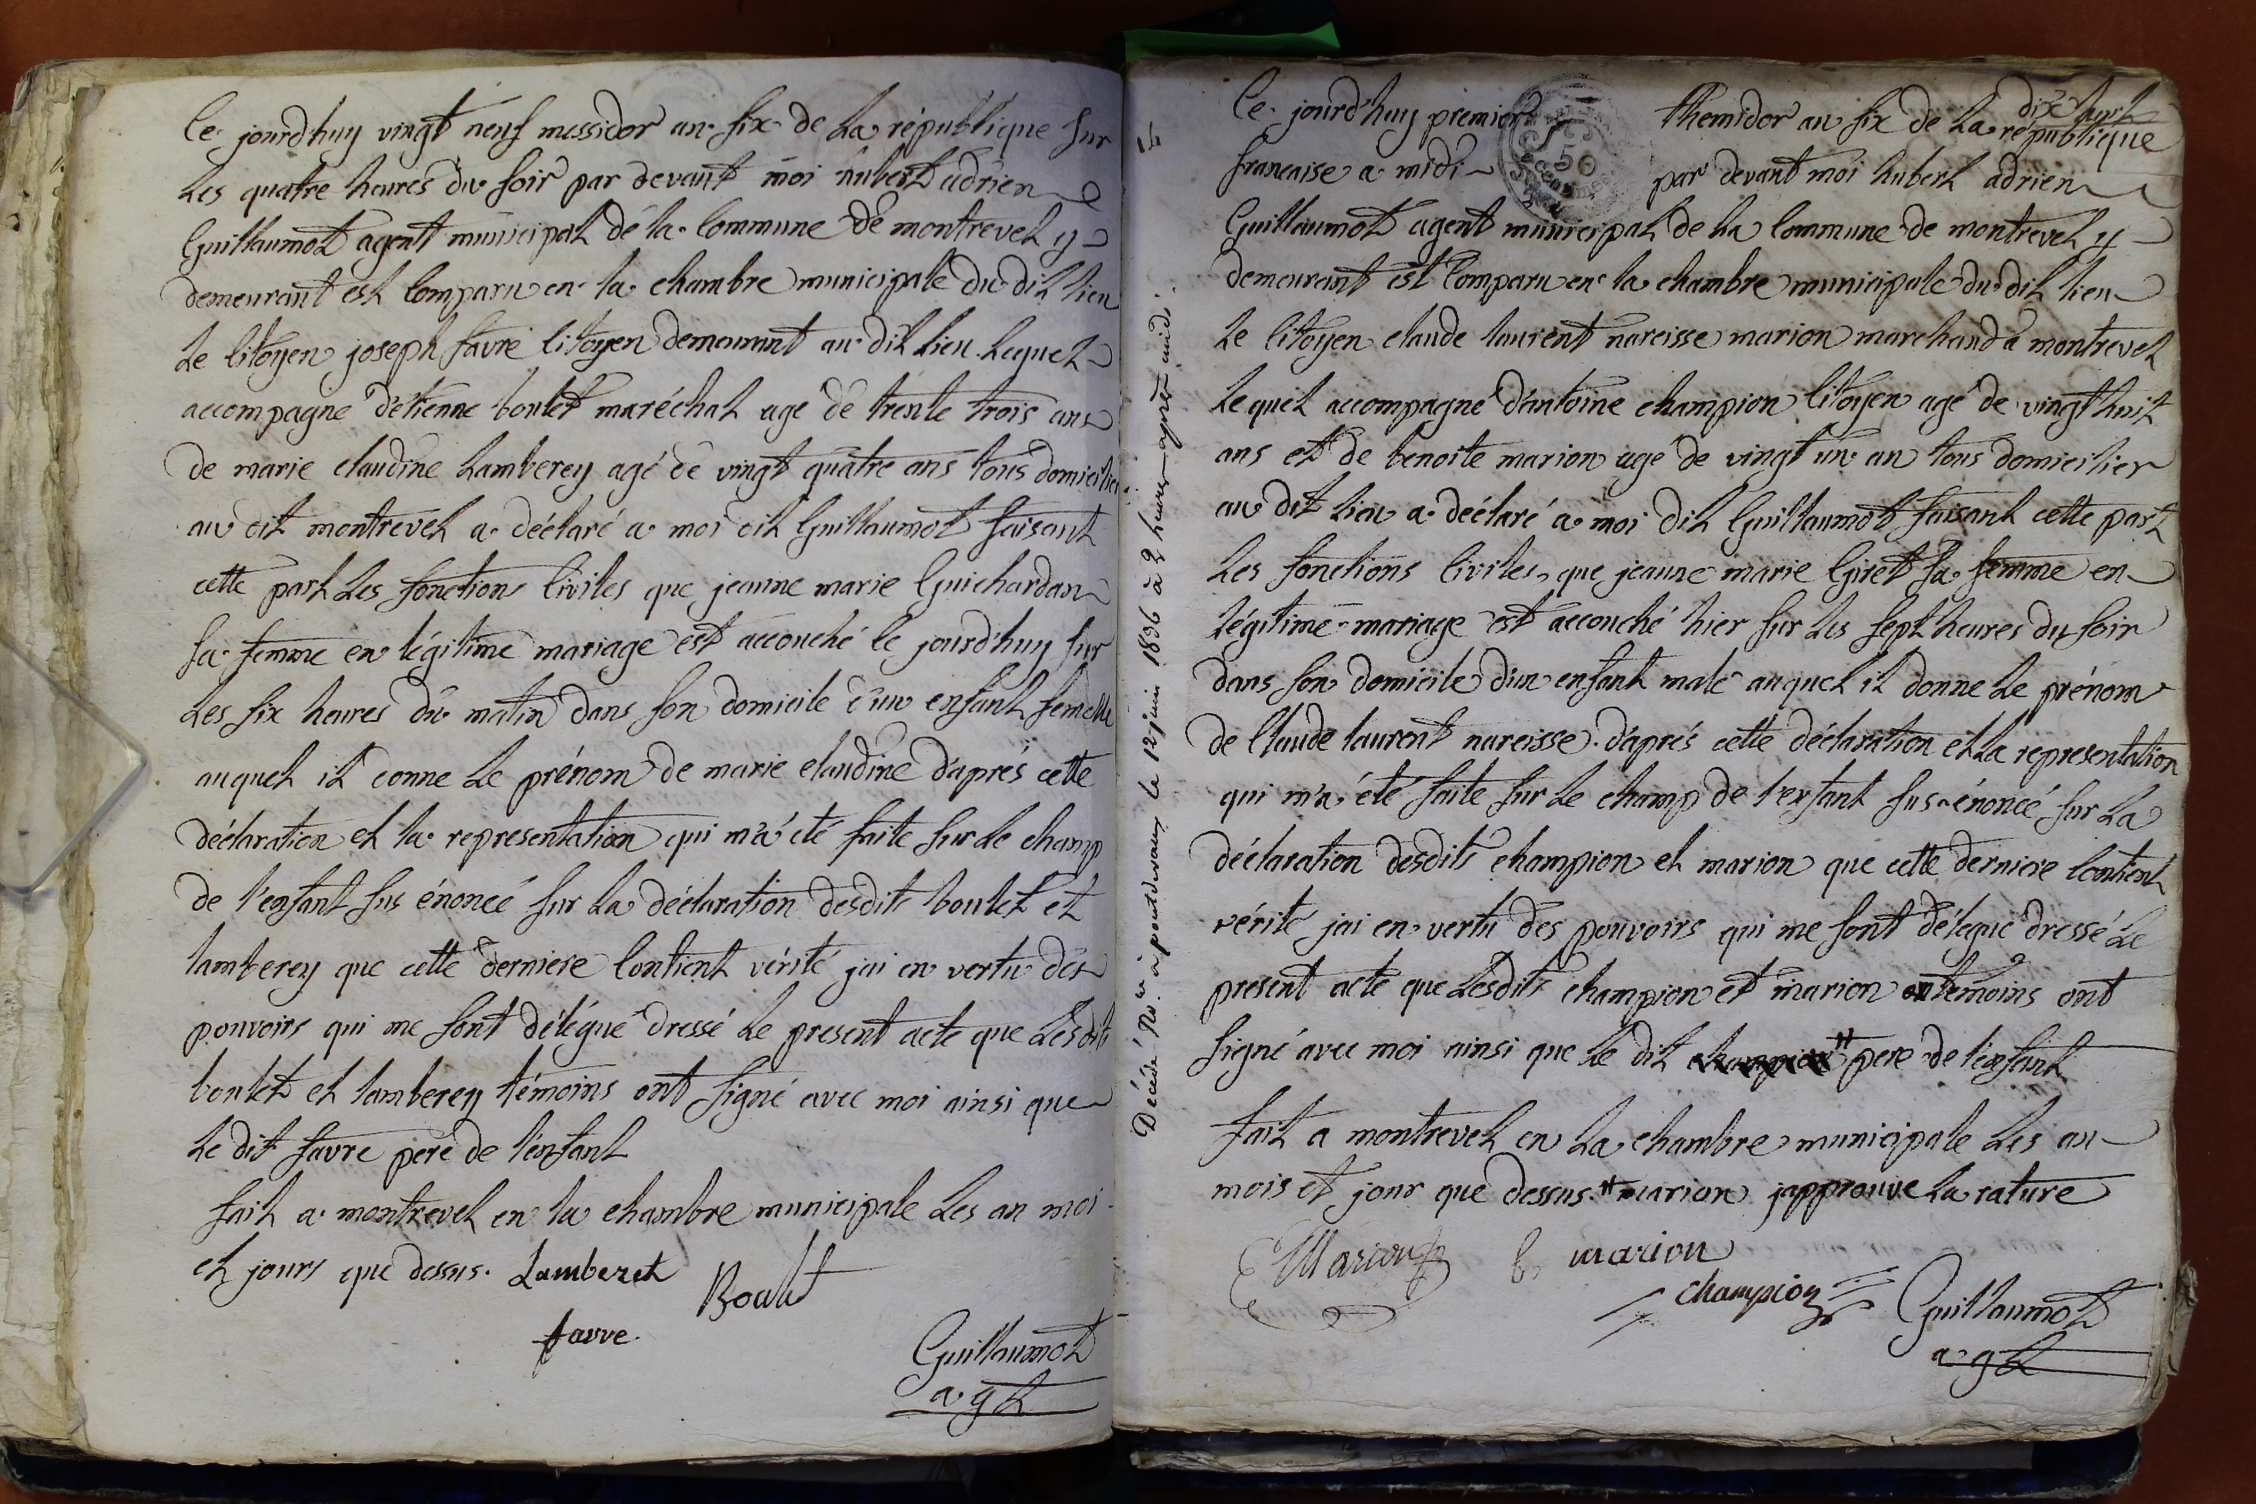 Ce jourd'huy vingt neuf messidor an six de la république sur
les quatre heures du soir par devant moi hubert adrien
Guillaumot agent municipal de la Commune de montrevel y
demeurant est Comparu en la chambre municipale du dit lieu
le Citoyen joseph favre Citoyen demeurant au dit lieu lequel
accompagne d'étienne boulet maréchal age de trente trois ans
de marie claudine Lamberey agé de vingt quatre ans tous domicilier
au dit montrevel a déclaré a moi dit Guillaumot faisant
cette part les fonctions Civiles que jeanne marie Guichardan
sa femme en légitime mariage est accouché le jourd'huy sur
les six heures du matin dans son domicile d'un enfant femelle
auquel il donne le prénom de marie claudine d'après cette
déclaration et la representation qui m'a été faite sur le champ
de l'enfant sus énoncé sur la déclaration desdits boulet et
lamberey que cette derniere Contient vérité jai en vertu des
pouvoirs qui me sont délégué dressé le present acte que lesdits
boulet et lamberey témoins ont signé avec moi ainsi que
le dit favre pere de l'enfant
fait a montrevel en la chambre municipale les an moi
et jours que dessus. Lamberet
Boulet
favre.
Guillaumot
agt
dix huit
Ce jourd'huy premier themidor an six de la république
francaise a midi par devant moi hubert adrien
50
Guillaumot agent municipal de la Commune de montrevel y
demeurant est Comparu en la chambre municipale du dit lieu
le Citoyen claude laurent narcisse marion marchand a montrevel
lequel accompagné d'antoine champion Citoyen agé de vingt huit
ans et de benoite marion agé de vingt un an tous domicilier
au dit lieu a déclaré a moi dit Guillaumot faisant cette part
les fonctions Civiles, que jeanne marie Giret sa femme en
légitime mariage est accouché hier sur les sept heures du soir
dans son domicile d'un enfant male auquel il donne le prénom
de Claude laurent narcisse. d'aprés cette déclaration et la representation
qui m'a été faite sur le champ de l'enfant sus énoncé sur la
déclaration desdits champion et marion que cette derniere Contient
vérité jai en vertu des pouvoirs qui me sont délégué dressé le
present acte que lesdits champion et marion témoins ont
signé avec moi ainsi que le dit champion # pere de l'enfant
fait a montrevel en la chambre municipale les an
mois et jour que dessus. # marion japprouve la rature
Marion
b. marion
champion
Guillaumot
agt
Décédé à pontdevaux le 12 juin 1836 à 2 heures après midi.